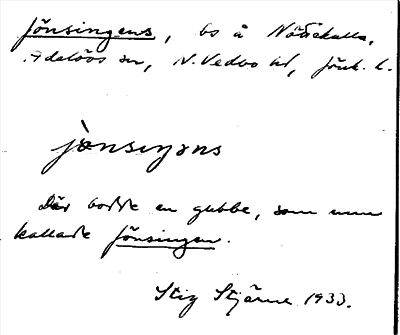 Jönsingens, bs å Nöbbekulla,
Adelövs sn, N. Vedbo hd, Jönk. l.
jönsiŋəns
Där bodde en gubbe, som man
kallade Jönsingen.
Stig Stjärne 1933.